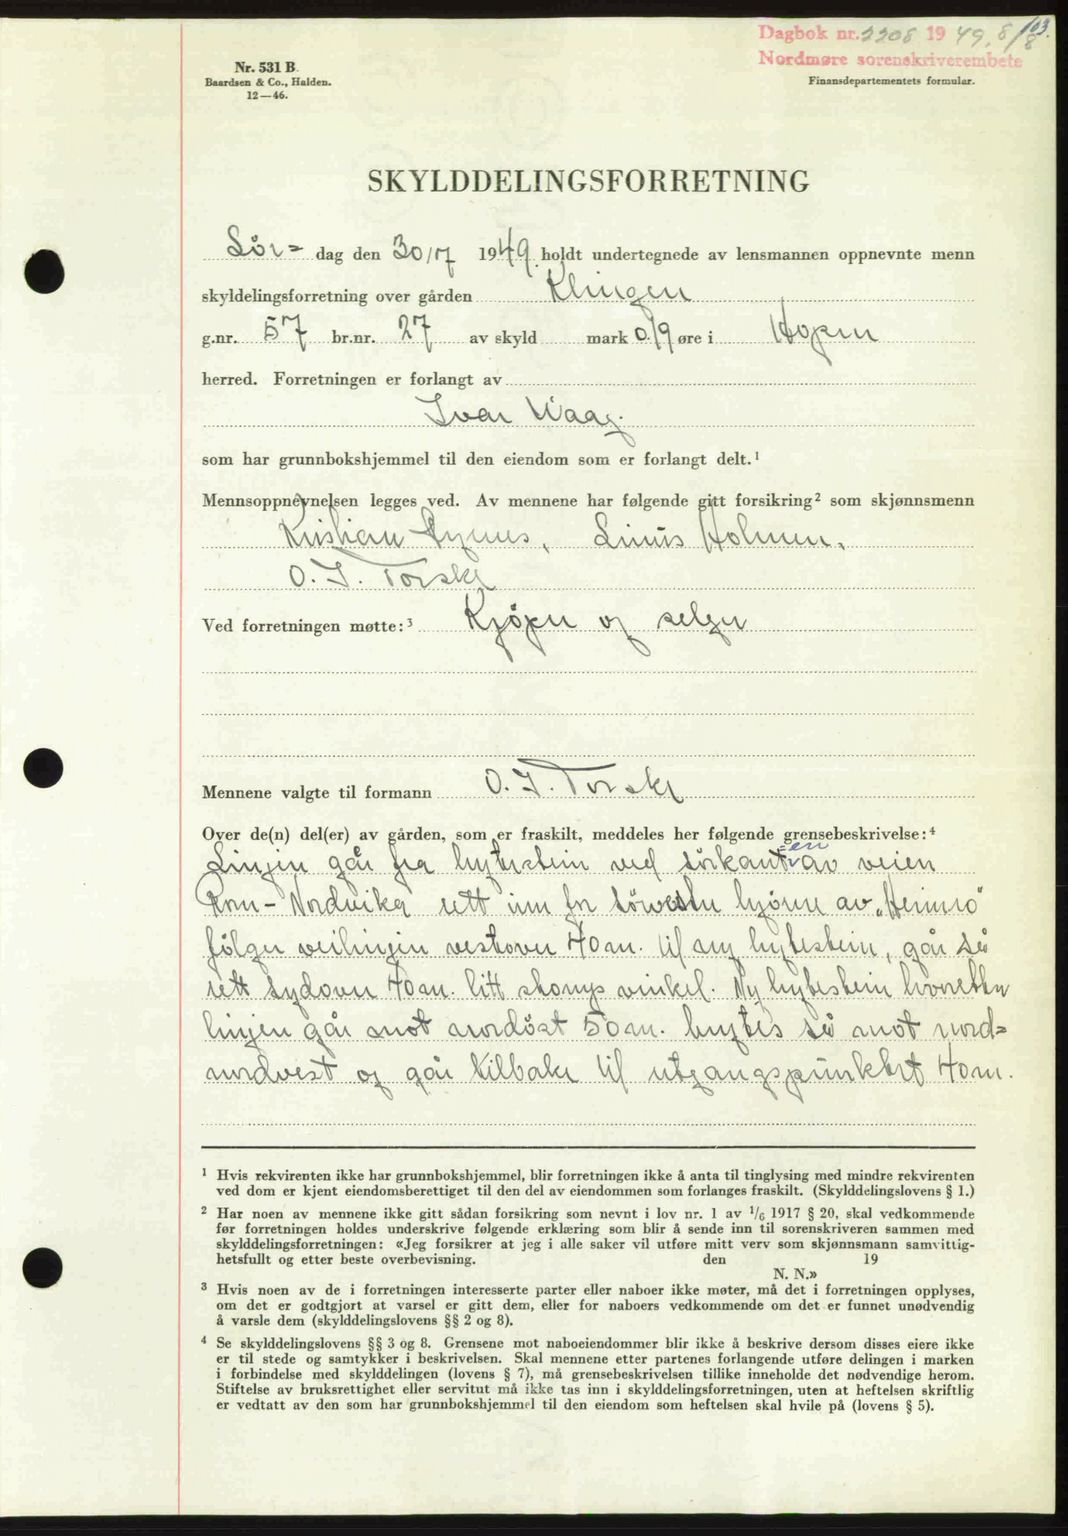 Dagbok nr. 2208 1949, 8/8 103.
Nordmøre sorenskriverembete
Nr. 531 B.
Baardsen & Co., Halden.
12—46.
Finansdepartementets formular.
SKYLDDELINGSFORRETNING
Lør= dag den 30/7 1949 holdt undertegnede av lensmannen oppnevnte menn
skyldelingsforretning over gården Klingen
g.nr. 57 br.nr. 27 av skyld mark 0.19 øre i Hopen
herred. Forretningen er forlangt av
Ivar Waag.
som har grunnbokshjemmel til den eiendom som er forlangt delt.¹
Mennsoppnevnelsen legges ved. Av mennene har følgende gitt forsikring² som skjønnsmenn
Kristian, Linus Holmen,
O. J. Torske
Ved forretningen møtte:³ Kjøper og selger
Mennene valgte til formann O. J. Torske
Over de(n) del(er) av gården, som er fraskilt, meddeles her følgende grensebeskrivelse:⁴
Linjen går fra byttestein ved sørkant=en av veien
Rom-Nordvika rett inn for sørvestre hjørne av "Heimro"
følger veilinjen vestover 40 m. til ny byttestein, går så
rett sydover 40 m. litt stomp vinkel. Ny byttestein hvoretter
linjen går mot nordøst 50 m. brytes så mot nord=
nordvest og går tilbake til utgangspunktet 40 m.
¹ Hvis rekvirenten ikke har grunnbokshjemmel, blir forretningen ikke å anta til tinglysing med mindre rekvirenten
ved dom er kjent eiendomsberettiget til den del av eiendommen som forlanges fraskilt. (Skylddelingslovens § 1.)
² Har noen av mennene ikke gitt sådan forsikring som nevnt i lov nr. 1 av 1/6 1917 § 20, skal vedkommende
før forretningen holdes underskrive følgende erklæring som blir å sende inn til sorenskriveren sammen med
skylddelingsforretningen: «Jeg forsikrer at jeg i alle saker vil utføre mitt verv som skjønnsmann samvittig-
hetsfullt og etter beste overbevisning. den 19
N. N.»
³ Hvis noen av de i forretningen interesserte parter eller naboer ikke møter, må det i forretningen opplyses,
om det er godtgjort at varsel er gitt dem, eller for naboers vedkommende om det er funnet unødvendig
å varsle dem (skylddelingslovens §§ 2 og 8).
⁴ Se skylddelingslovens §§ 3 og 8. Grensene mot naboeiendommer blir ikke å beskrive dersom disses eiere ikke
er til stede og samtykker i beskrivelsen. Skal mennene etter partenes forlangende utføre delingen i marken
i forbindelse med skylddelingen (lovens § 7), må grensebeskrivelsen tillike inneholde det nødvendige herom.
Stiftelse av bruksrettighet eller servitut må ikke tas inn i skylddelingsforretningen, uten at heftelsen skriftlig
er vedtatt av den som har grunnbokshjemmel til den eiendom som heftelsen skal hvile på (lovens § 5).